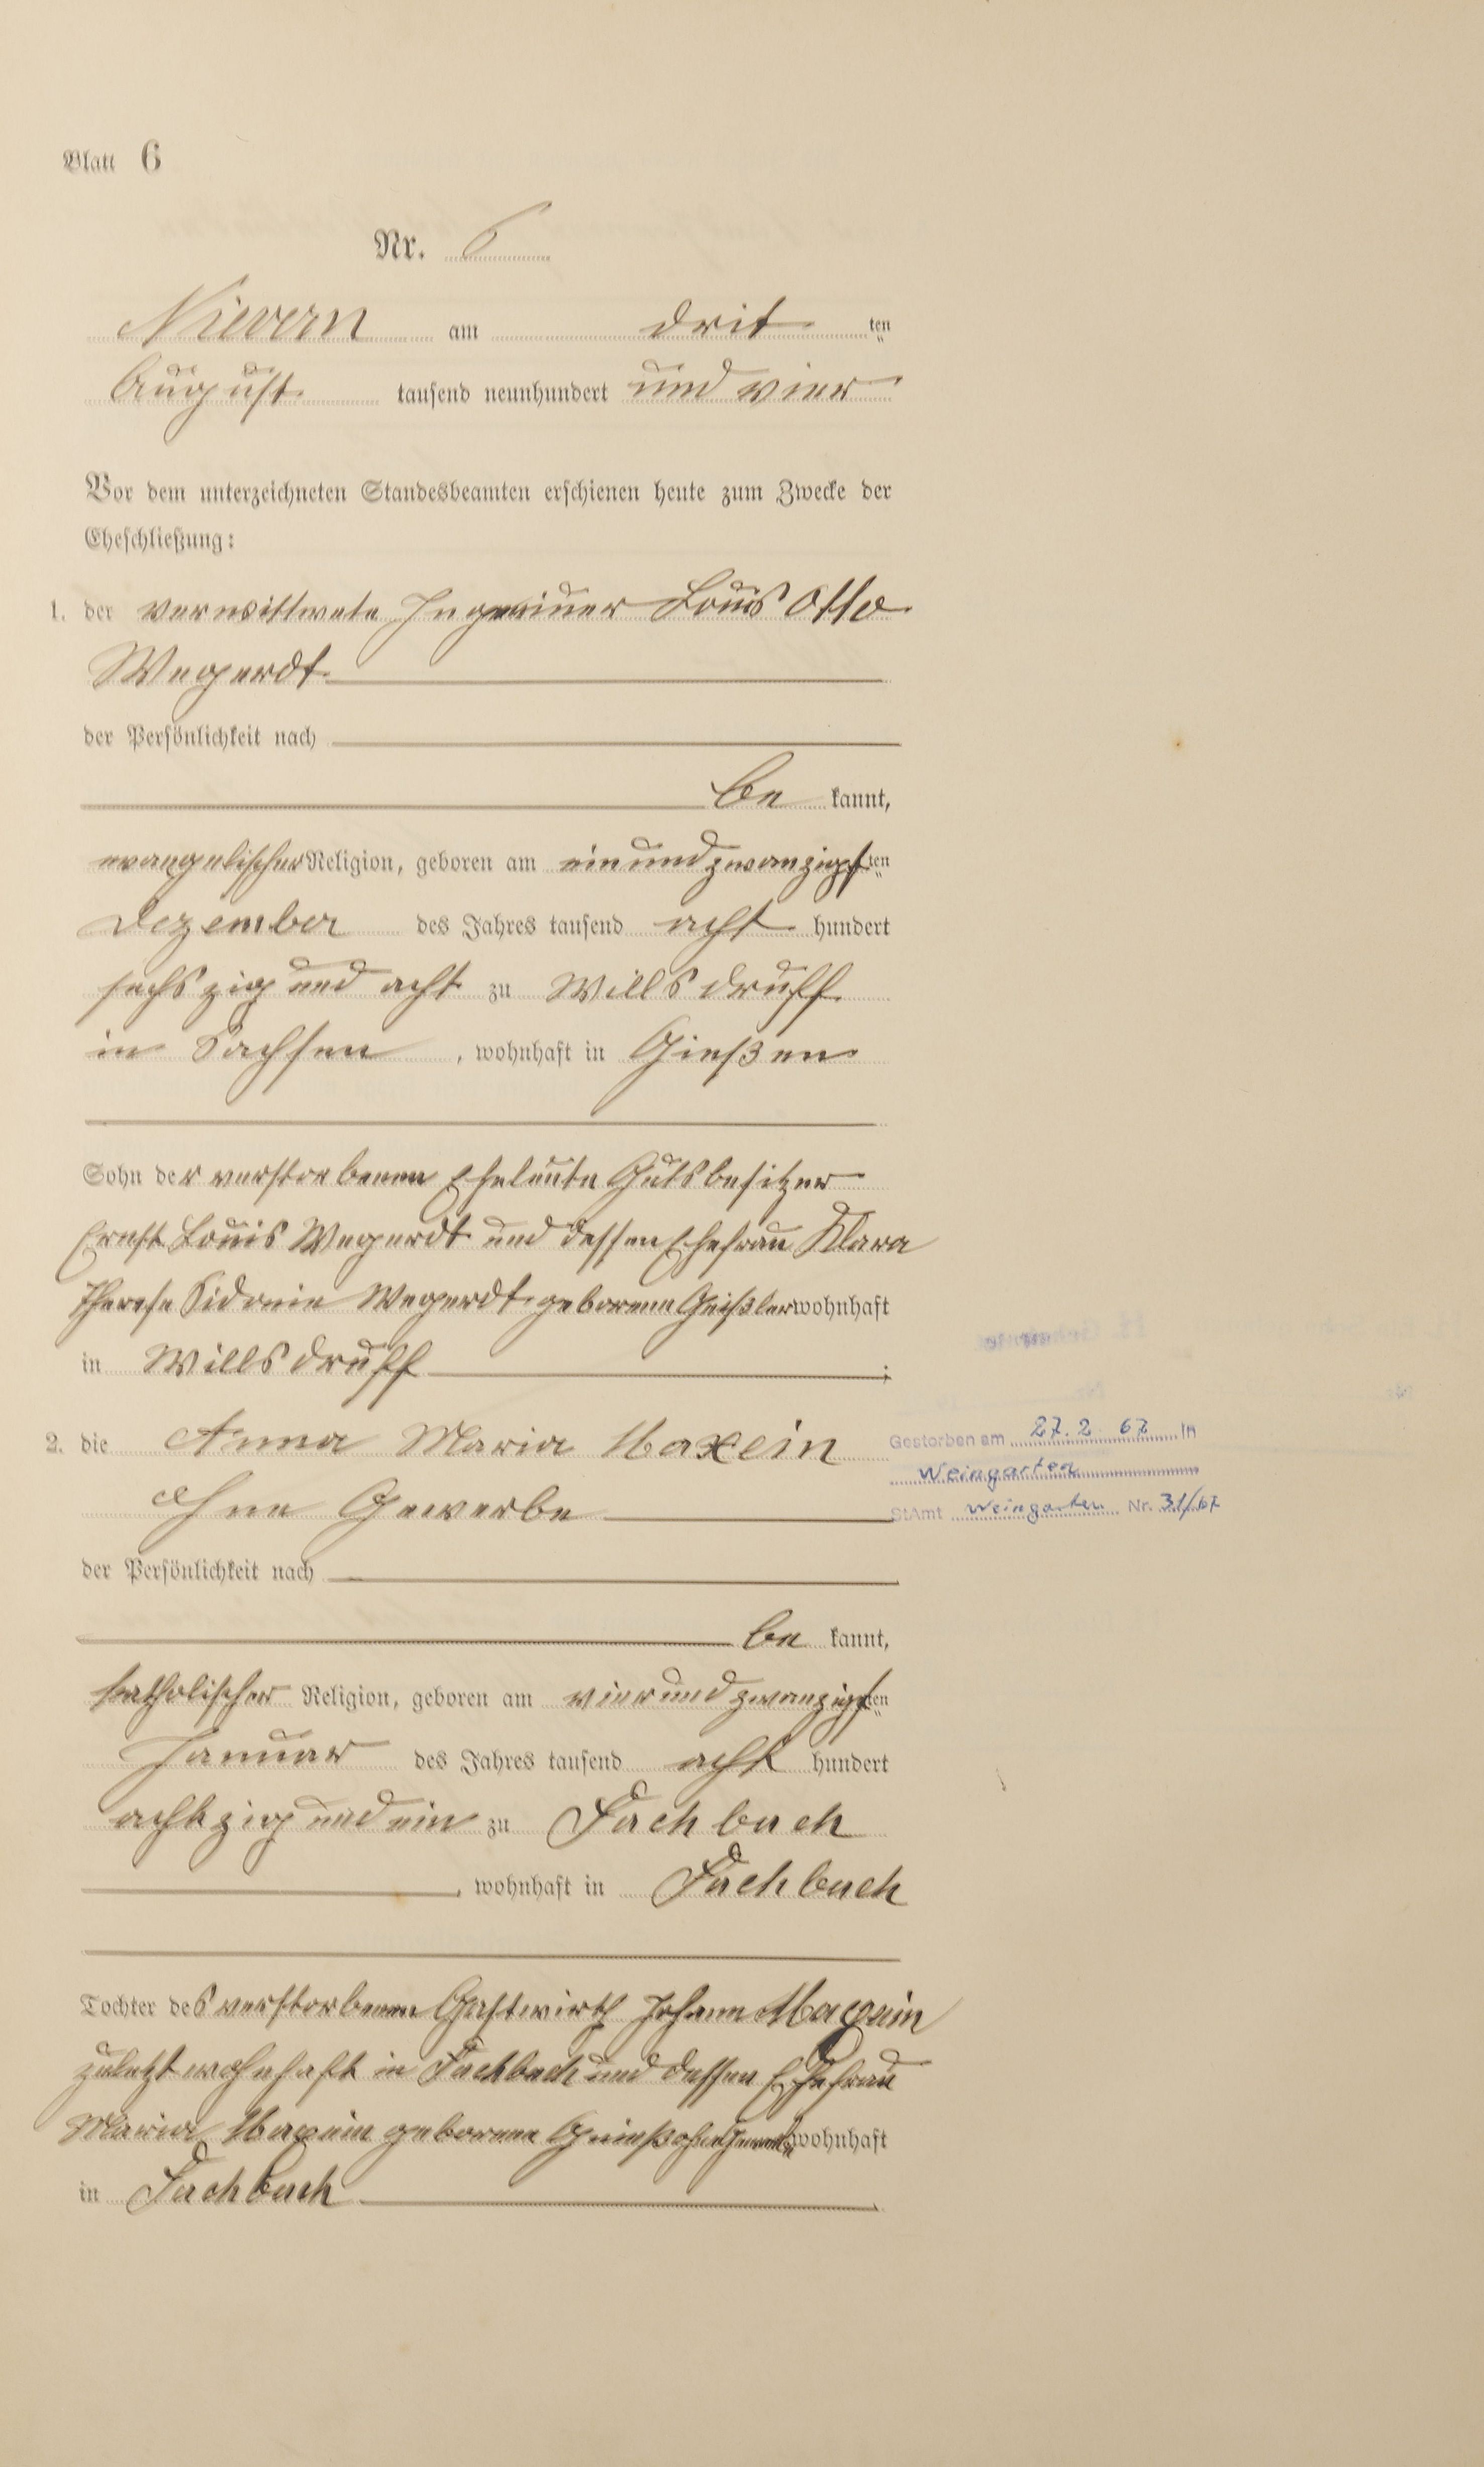 Blatt 6
Nr. 6
Nievern am drit ten
August tausend neunhundert und vier
Vor dem unterzeichneten Standesbeamten erschienen heute zum Zwecke der
Eheschließung:
1. der verwittwete Ingenieur Louis Otto
Wegerdt
der Persönlichkeit nach
be kannt,
evangelischer Religion, geboren am einundzwanzigsten
Dezember des Jahres tausend acht hundert
sechszig und acht zu Willsdruff
in Sachsen, wohnhaft in Gießen
Sohn der verstorbenen Eheleute Gutsbesitzer
Ernst Louis Wegerdt und dessen Ehefrau Klara
Therese Sidonie Wegerdt geborene Geißler wohnhaft
in Willsdruff ;
2. die Anna Maria Maxein
ohne Gewerbe
der Persönlichkeit nach
be kannt,
katholischer Religion, geboren am vierundzwanzigsten
Januar des Jahres tausend acht hundert
achtzig und ein zu Fachbach
, wohnhaft in Fachbach
Tochter des verstorbenen Gastwirth Johann Maxein
zuletzt wohnhaft in Fachbach und dessen Ehefrau
Maria Maxein geborene ohne Gewerbe wohnhaft
in Fachbach
Gestorben am 27.2.67 in
Weingarten
StAmt Weingarten Nr. 31/67